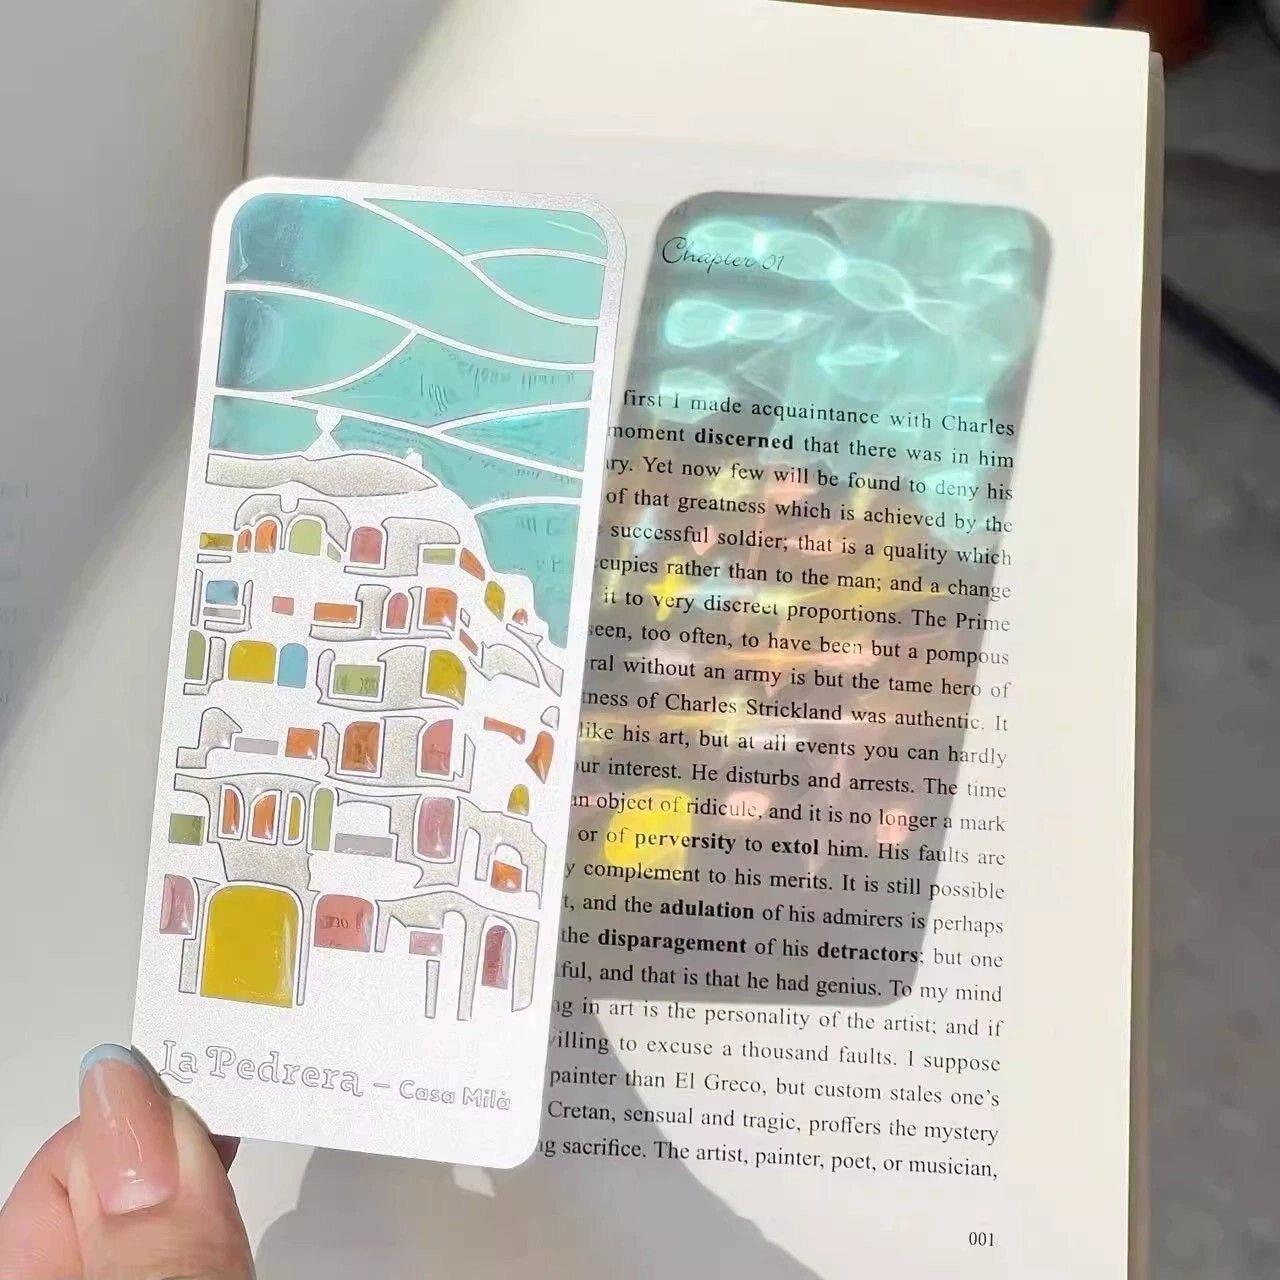 Chapter 01
first I made acquaintance with Charles
moment discerned that there was in him
ry. Yet now few will be found to deny his
of that greatness which is achieved by the
successful soldier; that is a quality which
cupies rather than to the man; and a change
it to very discreet proportions. The Prime
seen, too often, to have been but a pompous
ral without an army is but the tame hero of
ness of Charles Strickland was authentic. It
like his art, but at all events you can hardly
ur interest. He disturbs and arrests. The time
an object of ridicule, and it is no longer a mark
or of perversity to extol him. His faults are
y complement to his merits. It is still possible
t, and the adulation of his admirers is perhaps
the disparagement of his detractors; but one
ful, and that is that he had genius. To my mind
ng in art is the personality of the artist; and if
illing to excuse a thousand faults. I suppose
painter than El Greco, but custom stales one's
Cretan, sensual and tragic, proffers the mystery
ng sacrifice. The artist, painter, poet, or musician,
001
La Pedrera – Casa Milà